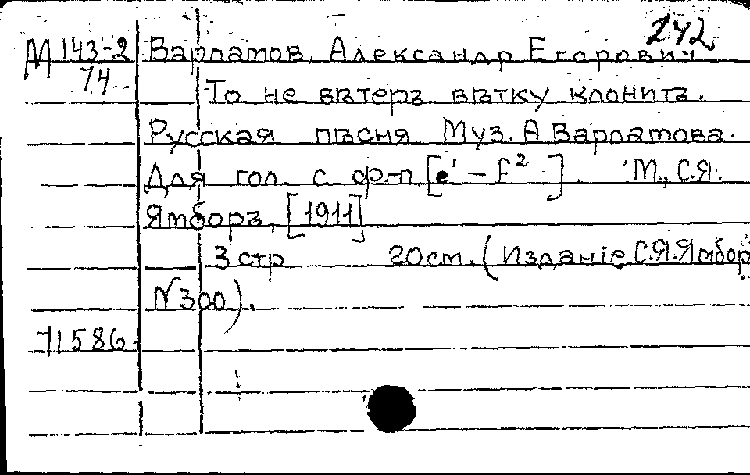 242
М 143-2 Варламов, Александр Егорович
74 То не вѣтеръ вѣтку клонитъ.
Русская пѣсня Муз. А Варламова.
Для гол. с ф-п [e' – f²]. М., С.Я.
Ямборъ, [1911]
3 стр 20 см. (Изданіе С.Я.Ямбор
N 300).
71586